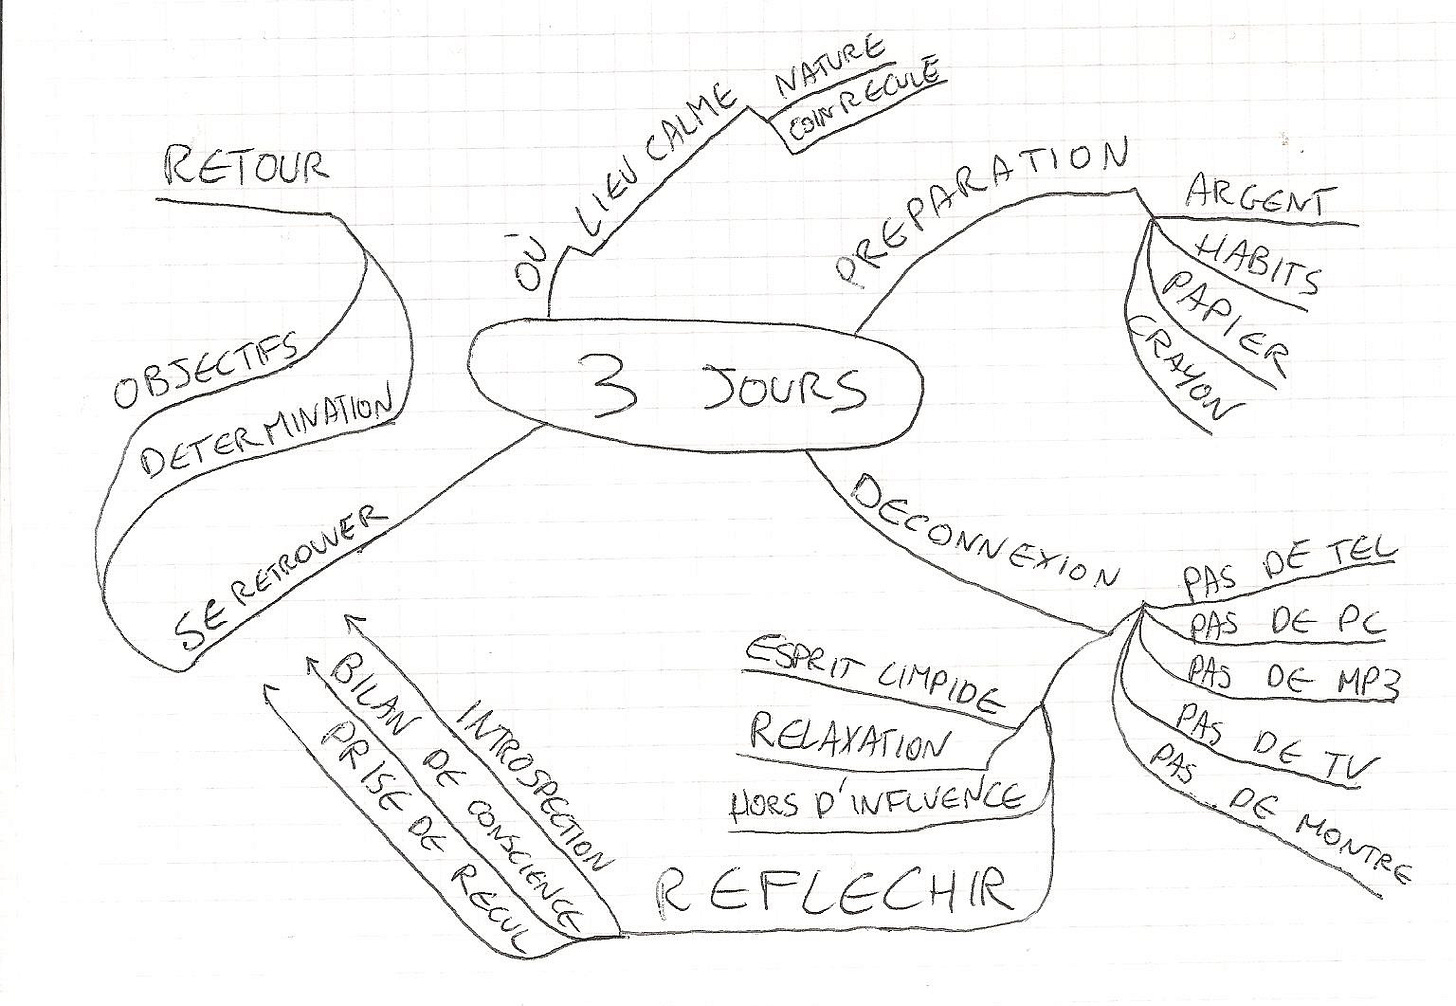 3 JOURS
OÙ
LIEU CALME
NATURE
COIN RECULÉ
PREPARATION
ARGENT
HABITS
PAPIER
CRAYON
DECONNEXION
PAS DE TEL
PAS DE PC
PAS DE MP3
PAS DE TV
PAS DE MONTRE
ESPRIT LIMPIDE
RELAXATION
HORS D'INFLUENCE
REFLECHIR
INTROSPECTION
BILAN DE CONSCIENCE
PRISE DE RECUL
SE RETROUVER
DETERMINATION
OBJECTIFS
RETOUR